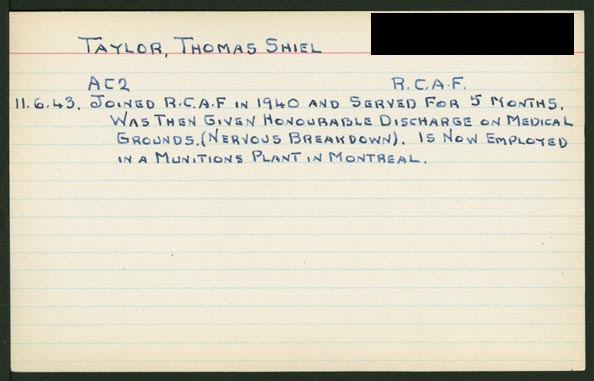 TAYLOR, THOMAS SHIEL
AC2 R.C.A.F.
11.6.43. JOINED R.C.A.F IN 1940 AND SERVED FOR 5 MONTHS.
WAS THEN GIVEN HONOURABLE DISCHARGE ON MEDICAL
GROUNDS.(NERVOUS BREAKDOWN). IS NOW EMPLOYED
IN A MUNITIONS PLANT IN MONTREAL.